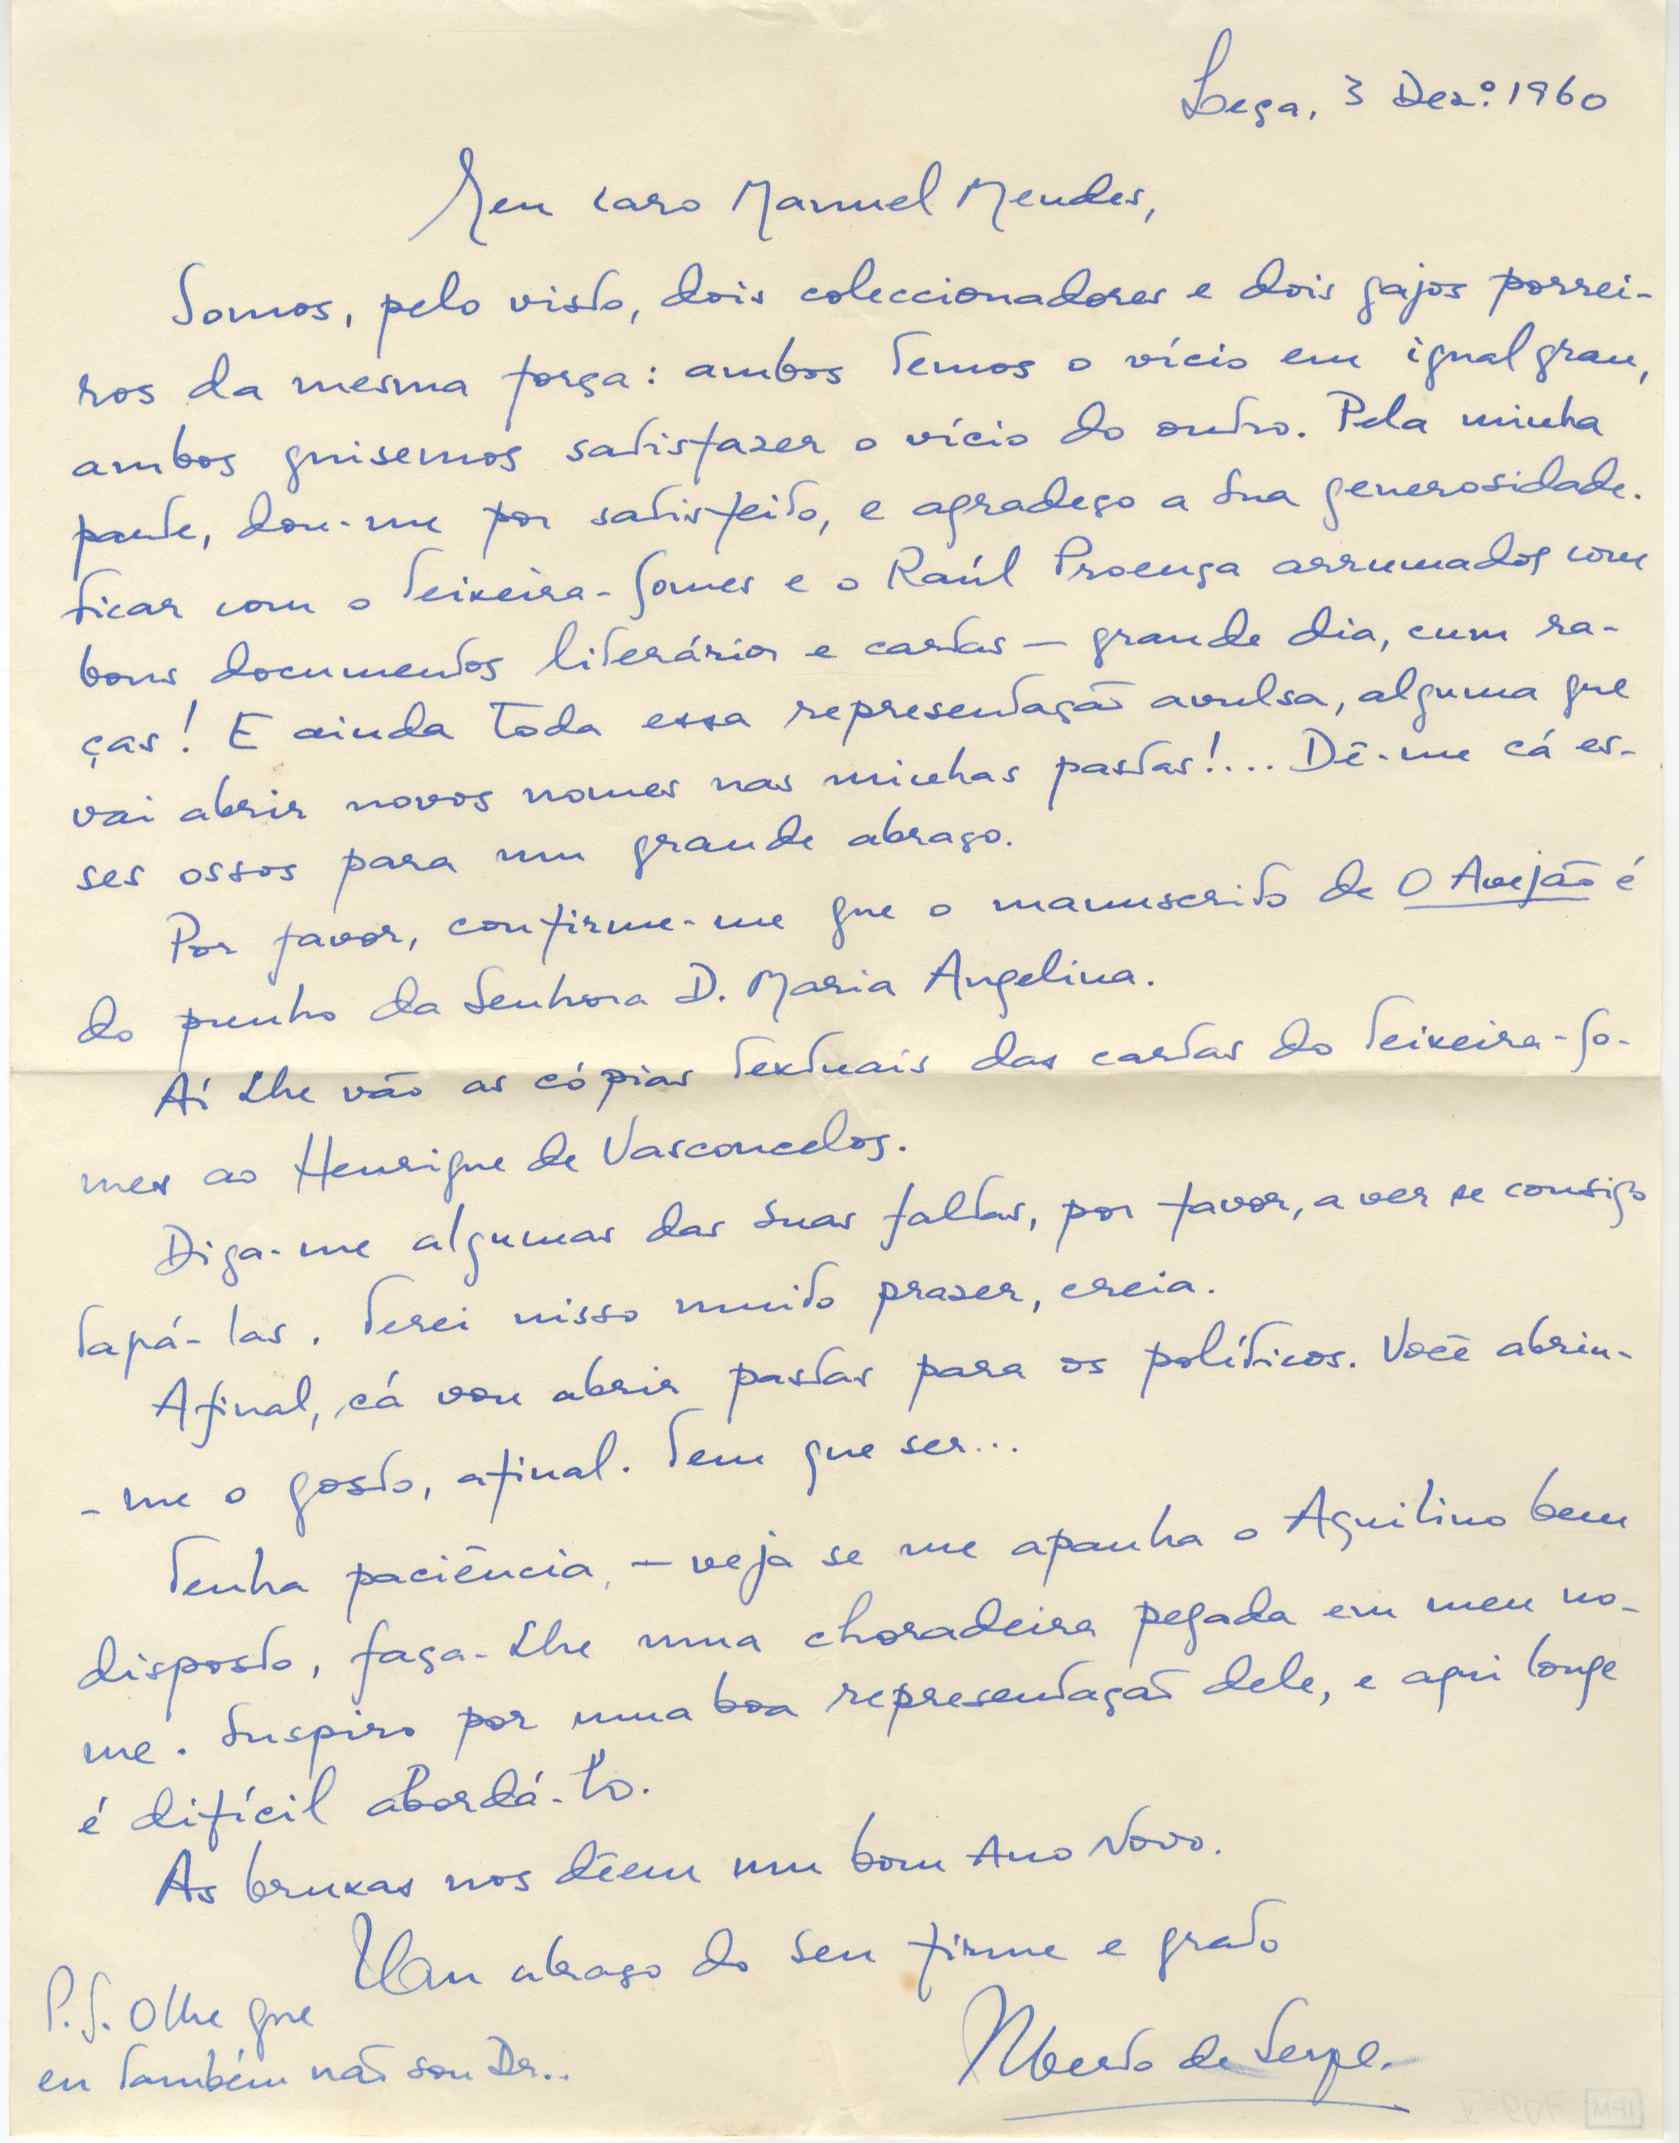 Leça, 3 Dez.º 1960
Meu caro Manuel Mendes,
Somos, pelo visto, dois coleccionadores e dois gajos porrei-
ros da mesma força: ambos temos o vício em igual grau,
ambos quisemos satisfazer o vício do outro. Pela minha
parte, dou-me por satisfeito, e agradeço a sua generosidade.
Ficar com o Teixeira-Gomes e o Raúl Proença arrumados com
bons documentos literários e cartas — grande dia, cum ra-
ças! E ainda toda essa representação avulsa, alguma que
vai abrir novos nomes nas minhas pastas!... Dê-me cá es-
ses ossos para um grande abraço.
Por favor, confirme-me que o manuscrito de O Avejão é
do punho da Senhora D. Maria Angelina.
Aí lhe vão as cópias textuais das cartas do Teixeira-Go-
mes ao Henrique de Vasconcelos.
Diga-me algumas das suas faltas, por favor, a ver se consigo
tapá-las. Terei nisso muito prazer, creia.
Afinal, cá vou abrir pastas para os políticos. Você abriu-
-me o gosto, afinal. Tem que ser...
Tenha paciência, — veja se me apanha o Aquilino bem
disposto, faça-lhe uma choradeira pegada em meu no-
me. Suspiro por uma boa representação dele, e aqui longe
é difícil abordá-lo.
As bruxas nos dêem um bom Ano Novo.
Um abraço do seu firme e grato
Alberto de Serpa.
P.S. Olhe que
eu também não sou Dr..